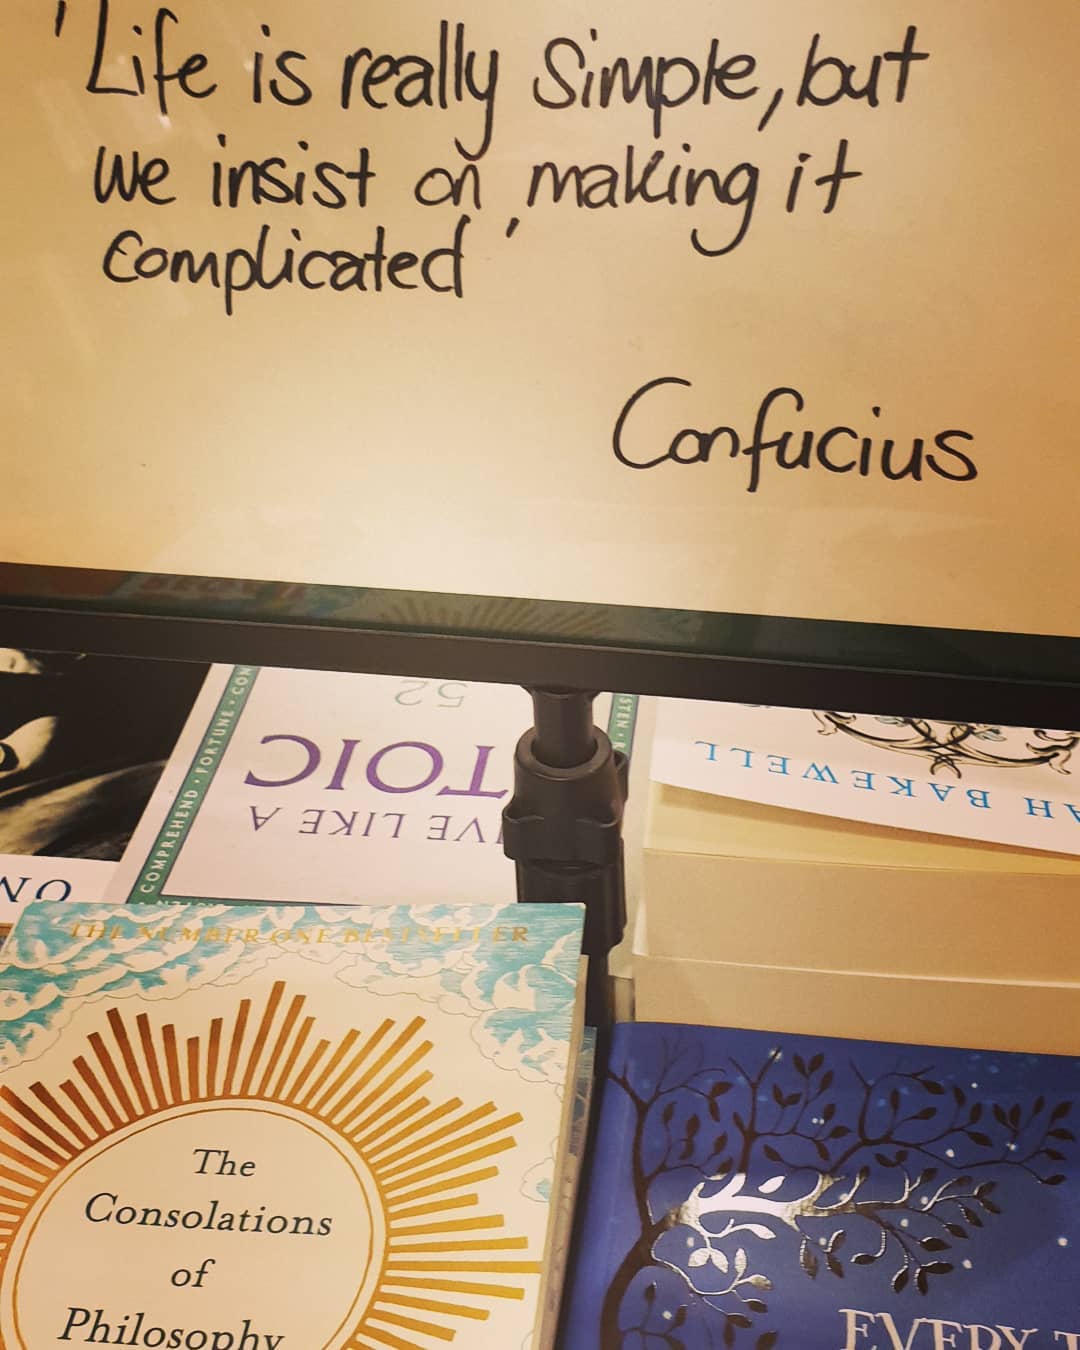 'Life is really Simple, but
we insist on making it
complicated'
Confucius
52
TOIC
LIVE LIKE A
COMPREHEND • FORTUNE • CON
STEN •
AH BAKEWELL
ON
THE NUMBER ONE BESTSELLER
The
Consolations
of
Philosophy
EVERY